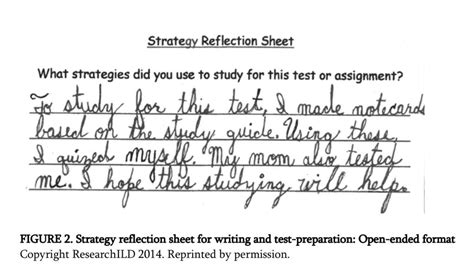 Strategy Reflection Sheet
What strategies did you use to study for this test or assignment?
To study for this test, I made notecards
based on the study guide. Using these,
I quized myself. My mom also tested
me. I hope this studying will help.
FIGURE 2. Strategy reflection sheet for writing and test-preparation: Open-ended format
Copyright ResearchILD 2014. Reprinted by permission.